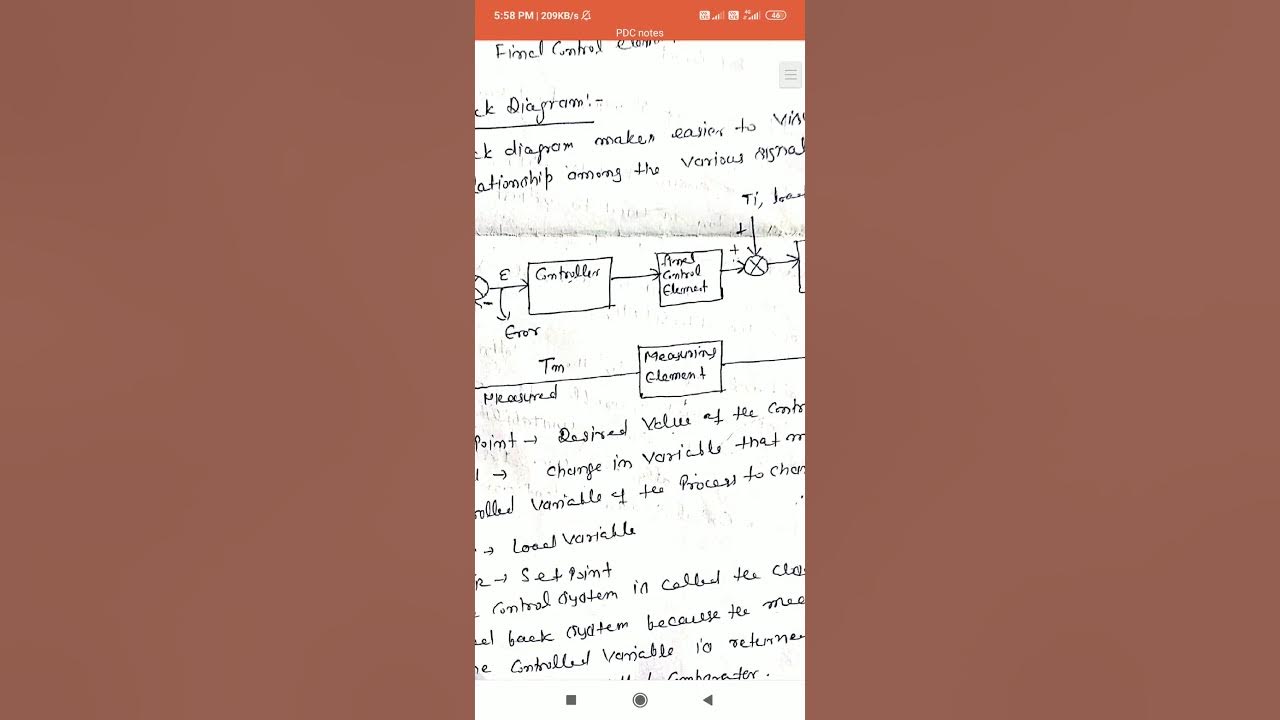 5:58 PM | 209KB/s
46
PDC notes
Final Control
ck Diagram:-
ck diagram makes easier to Vis
lationship among the various signal
Ti, load
+
+
ε
Controller
Final
Control
Element
-
Error
Tm
Measuring
Element
Measured
Point → Desired Value of the Contr
→ Change in variable that m
rolled Variable of the Process to chan
→ Load Variable
R → Set Point
Control System is called the clos
back system because the mea
Controlled Variable is returne
Comparator.